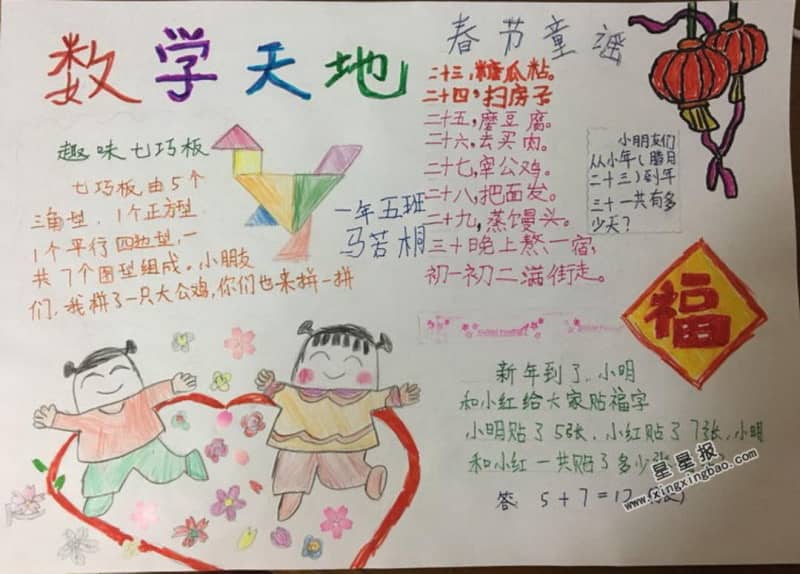 数学天地
趣味七巧板
七巧板由5个
三角型、1个正方型
1个平行四边型，一
共7个图型组成。小朋友
们，我拼了一只大公鸡，你们也来拼一拼
一年五班
马若桐
春节童谣
二十三，糖瓜粘。
二十四，扫房子
二十五，磨豆腐。
二十六，去买肉。
二十七，宰公鸡。
二十八，把面发。
二十九，蒸馒头。
三十晚上熬一宿，
初一初二满街走。
小朋友们
从小年（腊月
二十三）到年
三十一共有多
少天？
福
新年到了，小明
和小红给大家贴福字
小明贴了5张，小红贴了7张，小明
和小红一共贴了多少张
答 5+7=12
星星报
www.xingxingbao.com